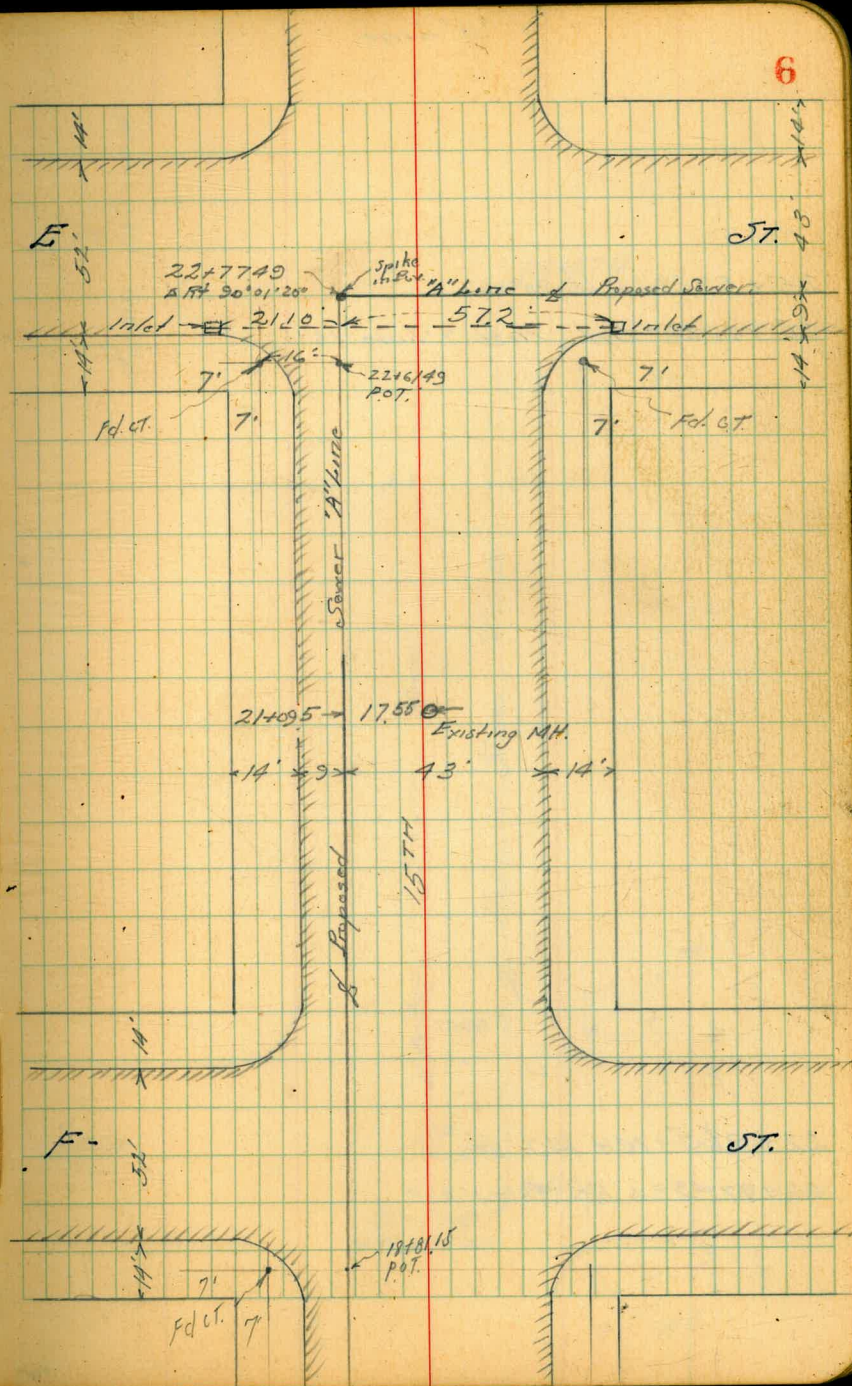 6
14'
14'
E
ST.
52'
43'
22+77.49
Δ Rt 90°01'20"
Spike
"A" Line ₵ Proposed Sewer
Inlet
21.10
57.2
Inlet
9
14'
14'
16'
22+61.49
P.O.T.
7'
7'
Fd. CT.
7'
7'
Fd. CT.
Sewer "A" Line
21+09.5
17.55
Existing MH.
14'
9
43'
14'
15TH
₵ Proposed
14'
F-
ST.
52'
18+81.15
P.O.T.
14'
7'
Fd CT.
7'